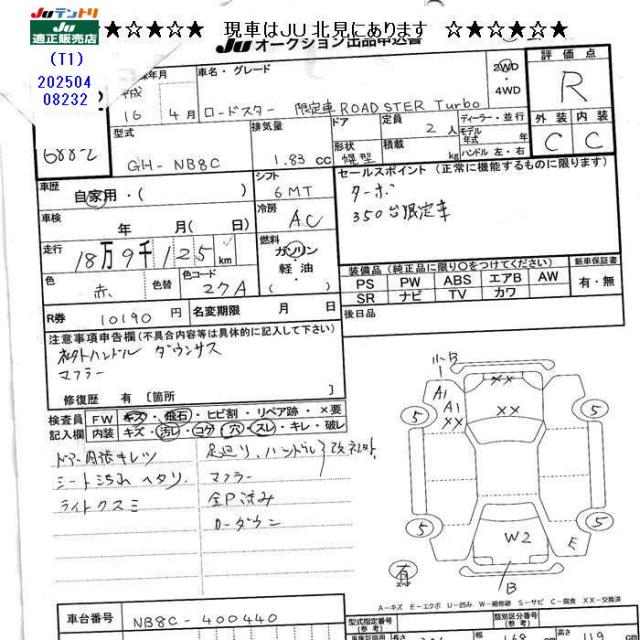 JUテントリ
JU
適正販売店
(T1)
202504
08232
★☆★☆★ 現車はJU北見にあります ☆★☆★☆★
JU オークション出品申込書
年月
平成
16 4月
車名・グレード
ロードスター 限定車 ROADSTER Turbo
2WD
・
4WD
評価点
R
外装 内装
C C
6882
型式
GH-NB8C
排気量
1.83 cc
ドア
形状
幌型
定員
2人
積載
kg
ディーラー・並行
モデル
年式 年
ハンドル 左・右
車歴
自家用・( )
シフト
6MT
セールスポイント(正常に機能するものに限ります)
ターボ
350台限定車
車検
年 月( 日)
冷房
AC
走行
18万9千125km
燃料
ガソリン
・
軽油
・
色
赤
色替
色コード
27A
装備品(純正品に限り○をつけてください)
PS PW ABS エアB AW
SR ナビ TV カワ
新車保証書
有・無
R券
10190円
名変期限 月 日
後日品
注意事項申告欄(不具合内容等は具体的に記入して下さい)
社外ハンドル ダウンサス
マフラー
修復歴 有〔箇所 〕
検査員
記入欄
FW キズ・飛石・ヒビ割・リペア跡・×要
内装 キズ・汚レ・コゲ・穴・スレ・キレ・破レ
ドアー内張キレツ
シート汚れ ヘタリ
ライトクスミ
足廻り、ハンドル 改 社外
マフラー
全P済み
ローダウン
A1
A1
XX
XX
XX
B
5
5
5
5
W2
E
B
A－キズ E－エクボ U－凹み W－補修跡 S－サビ C－腐食 XX－交換済
車台番号
NB8C-400440
型式指定
(参考)
類別区分番号
(参考)
168
119